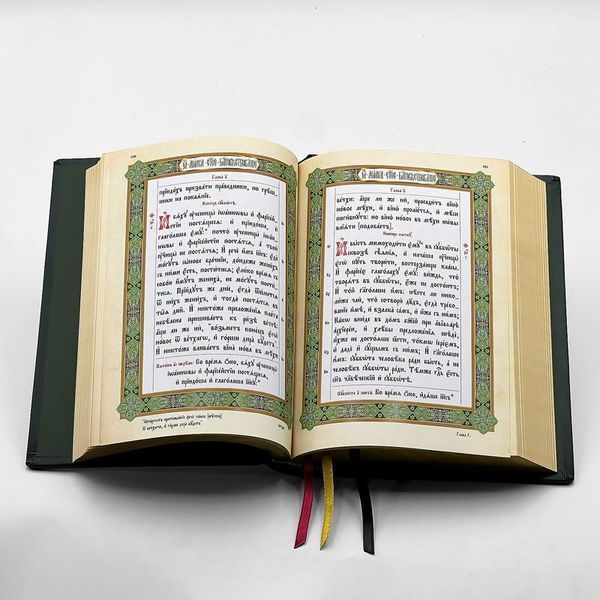 Ѿ марка ст҃ое бл҃говѣствованїе
Глава в҃
прїидо́хъ призвати првⷣники, но грѣш-
ники на покаѧ́нїе.
Коне́цъ сꙋббѡ́тѣ.
И бѧ́хꙋ ᲂу҆чн҃цы і҆ѡа́ннѡвы и҆ фарїсе́й-
стїи постѧ́щесѧ: и҆ прїидо́ша и҆
глаго́лаша є҆мꙋ̀: почто̀ ᲂу҆чн҃цы і҆ѡа́н-
нѡвы и҆ фарїсе́йстїи постѧ́тсѧ, а҆ твоѝ
ᲂу҆чн҃цы не постѧ́тсѧ; И҆ речѐ и҆̀мъ і҆и҃съ: є҆да̀
мо́гꙋтъ сы́нове бра́чнїи, до́ндеже жени́хъ
съ ни́ми є҆́сть, пости́тисѧ; є҆ли́ко вре́мѧ съ
собо́ю и҆́мꙋтъ жениха̀, не мо́гꙋтъ пости́-
тисѧ. Прїи́дꙋтъ же дні́е, є҆гда̀ ѿи́метсѧ
ѿ ни́хъ жени́хъ, и҆ тогда̀ постѧ́тсѧ въ
ты̑ѧ дни̑. И҆ никто́же приставле́нїѧ пла́та
небѣ́лена пришива́етъ къ ри́зѣ ве́тсѣ:
а҆́ще ли же нѝ, во́зметъ коне́цъ є҆гѡ̀
но́вое ѿ ве́тхагѡ, и҆ го́рши дира̀ бꙋ́детъ.
И҆ никто́же влива́етъ вїна̀ но́ва въ мѣ́хи
Во вре́мѧ ѻ҆́но, бѧ́хꙋ ᲂу҆чн҃цы
і҆ѡа́ннѡвы и҆ фарїсе́йстїи постѧ́щесѧ,
и҆ прїидо́ша и҆ глаго́лаша і҆и҃сꙋ:
Ѿ марка ст҃ое бл҃говѣствованїе
Глава в҃
ве́тхи: а҆́ще ли же нѝ, проса́дитъ вїно̀
но́вое мѣ́хи, и҆ вїно̀ пролїе́тсѧ, и҆ мѣ́си
поги́бнꙋтъ: но вїно̀ но́вое въ мѣ́хи нѡ́вы
влїѧ́ти [подоба́етъ].
И҆ бы́сть мимоходи́ти є҆мꙋ̀ въ сꙋббѡ̑ты
сквозѣ̀ сѣ̑ѧнїѧ, и҆ нача́ша ᲂу҆чн҃цы
є҆гѡ̀ пꙋ́ть твори́ти, востерза́юще кла́сы.
И҆ фарїсе́є глаго́лахꙋ є҆мꙋ̀: ви́ждь, что̀
творѧ́тъ въ сꙋббѡ̑ты, є҆гѡ́же не досто́итъ;
И҆ то́й глаго́лаше и҆̀мъ: нѣ́сте ли нико-
ли́же члѝ, что̀ сотворѝ дв҃дъ, є҆гда̀ тре́бо-
ванїе и҆мѣ̀, и҆ взалка̀ са́мъ, и҆ и҆̀же съ ни́мъ;
Ка́кѡ вни́де въ до́мъ бж҃їй при а҆вїаѳа́рѣ
а҆рхїере́и, и҆ хлѣ́бы предложе́нїѧ снѣдѐ,
и҆́хже не досто́ѧше ꙗ҆́сти, то́кмѡ і҆ере́ѡмъ,
и҆ дадѐ и҆ сꙋ́щымъ съ ни́мъ; И҆ глаго́лаше
и҆̀мъ: сꙋббѡ́та человѣ́ка ра́ди бы́сть, а҆ не
человѣ́къ сꙋббѡ́ты ра́ди. Тѣ́мже гдⷭ҇ь є҆́сть
сн҃ъ чл҃вѣ́ческїй и҆ сꙋббѡ́тѣ.
Во вре́мѧ ѻ҆́но, и҆дѧ́ше і҆и҃съ
Глава г҃.